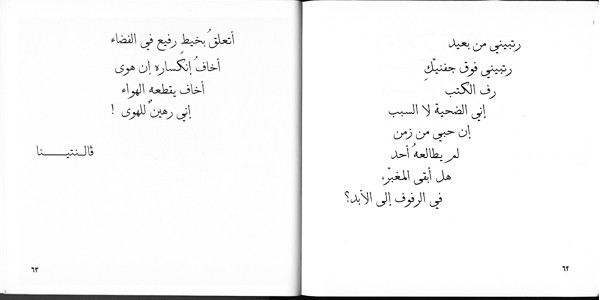 رتبيني من بعيد
رتبيني فوق جفنيْكِ
رف الكتب
إني الضحية لا السبب
إن حبي من زمن
لم يطالعهُ أحد
هل أبقى المغبرّ،
في الرفوف إلى الأبد؟
٦٢
أتعلقُ بخيطٍ رفيع في الفضاء
أخافُ إنكساره إن هوى
أخاف يقطعه الهواء
إني رهينٌ للهوى !
ڤالنتينا
٦٣